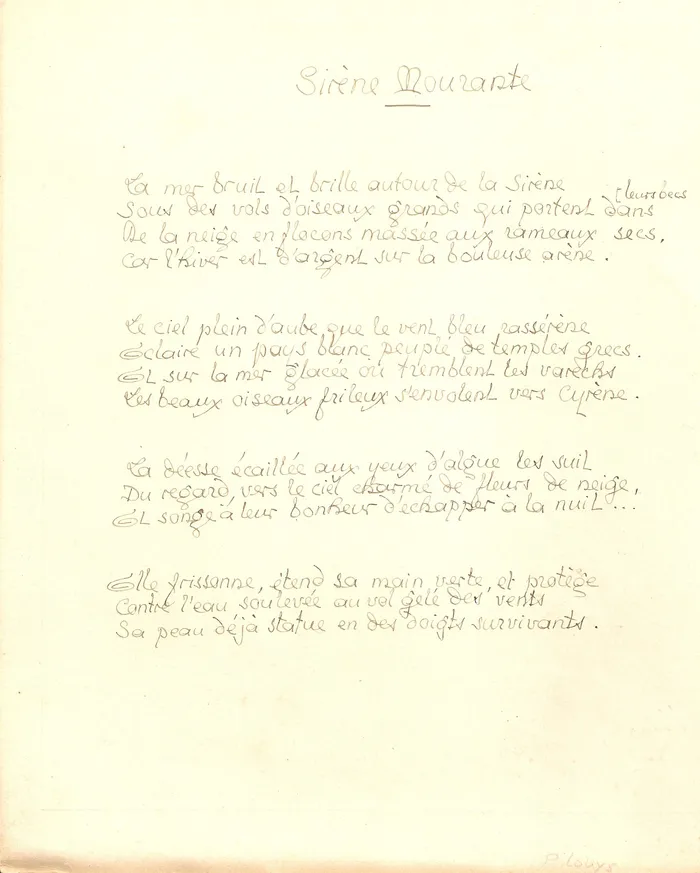 Sirène Mourante
La mer bruit et brille autour de la Sirène
Sous des vols d'oiseaux grands qui portent dans [leurs becs
De la neige en flocons massée aux rameaux secs,
Car l'hiver est d'argent sur la houleuse arène.
Le ciel plein d'aube, que le vent bleu rassérène
Eclaire un pays blanc peuplé de temples grecs.
Et sur la mer glacée où tremblent les varechs
Les beaux oiseaux frileux s'envolent vers Cyrène.
La déesse écaillée aux yeux d'algue les suit
Du regard, vers le ciel charmé de fleurs de neige,
Et songe à leur bonheur d'echapper à la nuit...
Elle frissonne, étend sa main verte, et protège
Contre l'eau soulevée au vol gelé des vents
Sa peau déjà statue en des doigts survivants.
P Louys